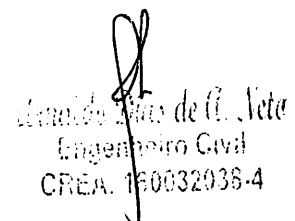 Dias de A. Neto
Engenheiro Civil
CREA. 160032038-4